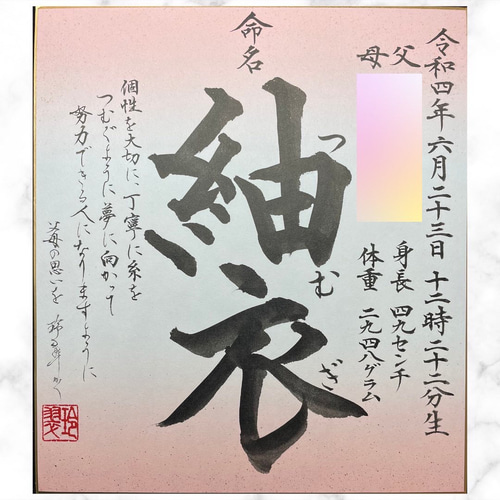 令和四年六月二十三日 十二時二十二分生
父
母
身長 四九センチ
体重 二九四八グラム
命名
紬衣
つむぎ
個性を大切に、丁寧に糸を
つむぐように夢に向かって
努力できる人になりますように
父母の思いを